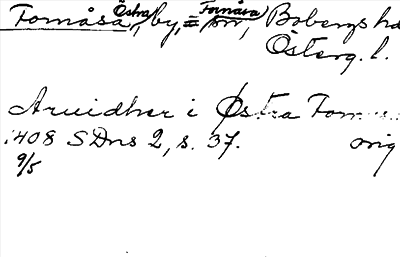 Fornåsa, Östra, by, Fornåsa sn, Bobergs hd
Österg. l.
Arvidher i Østra Forn
1408 SDns 2, s. 37. orig
9/5